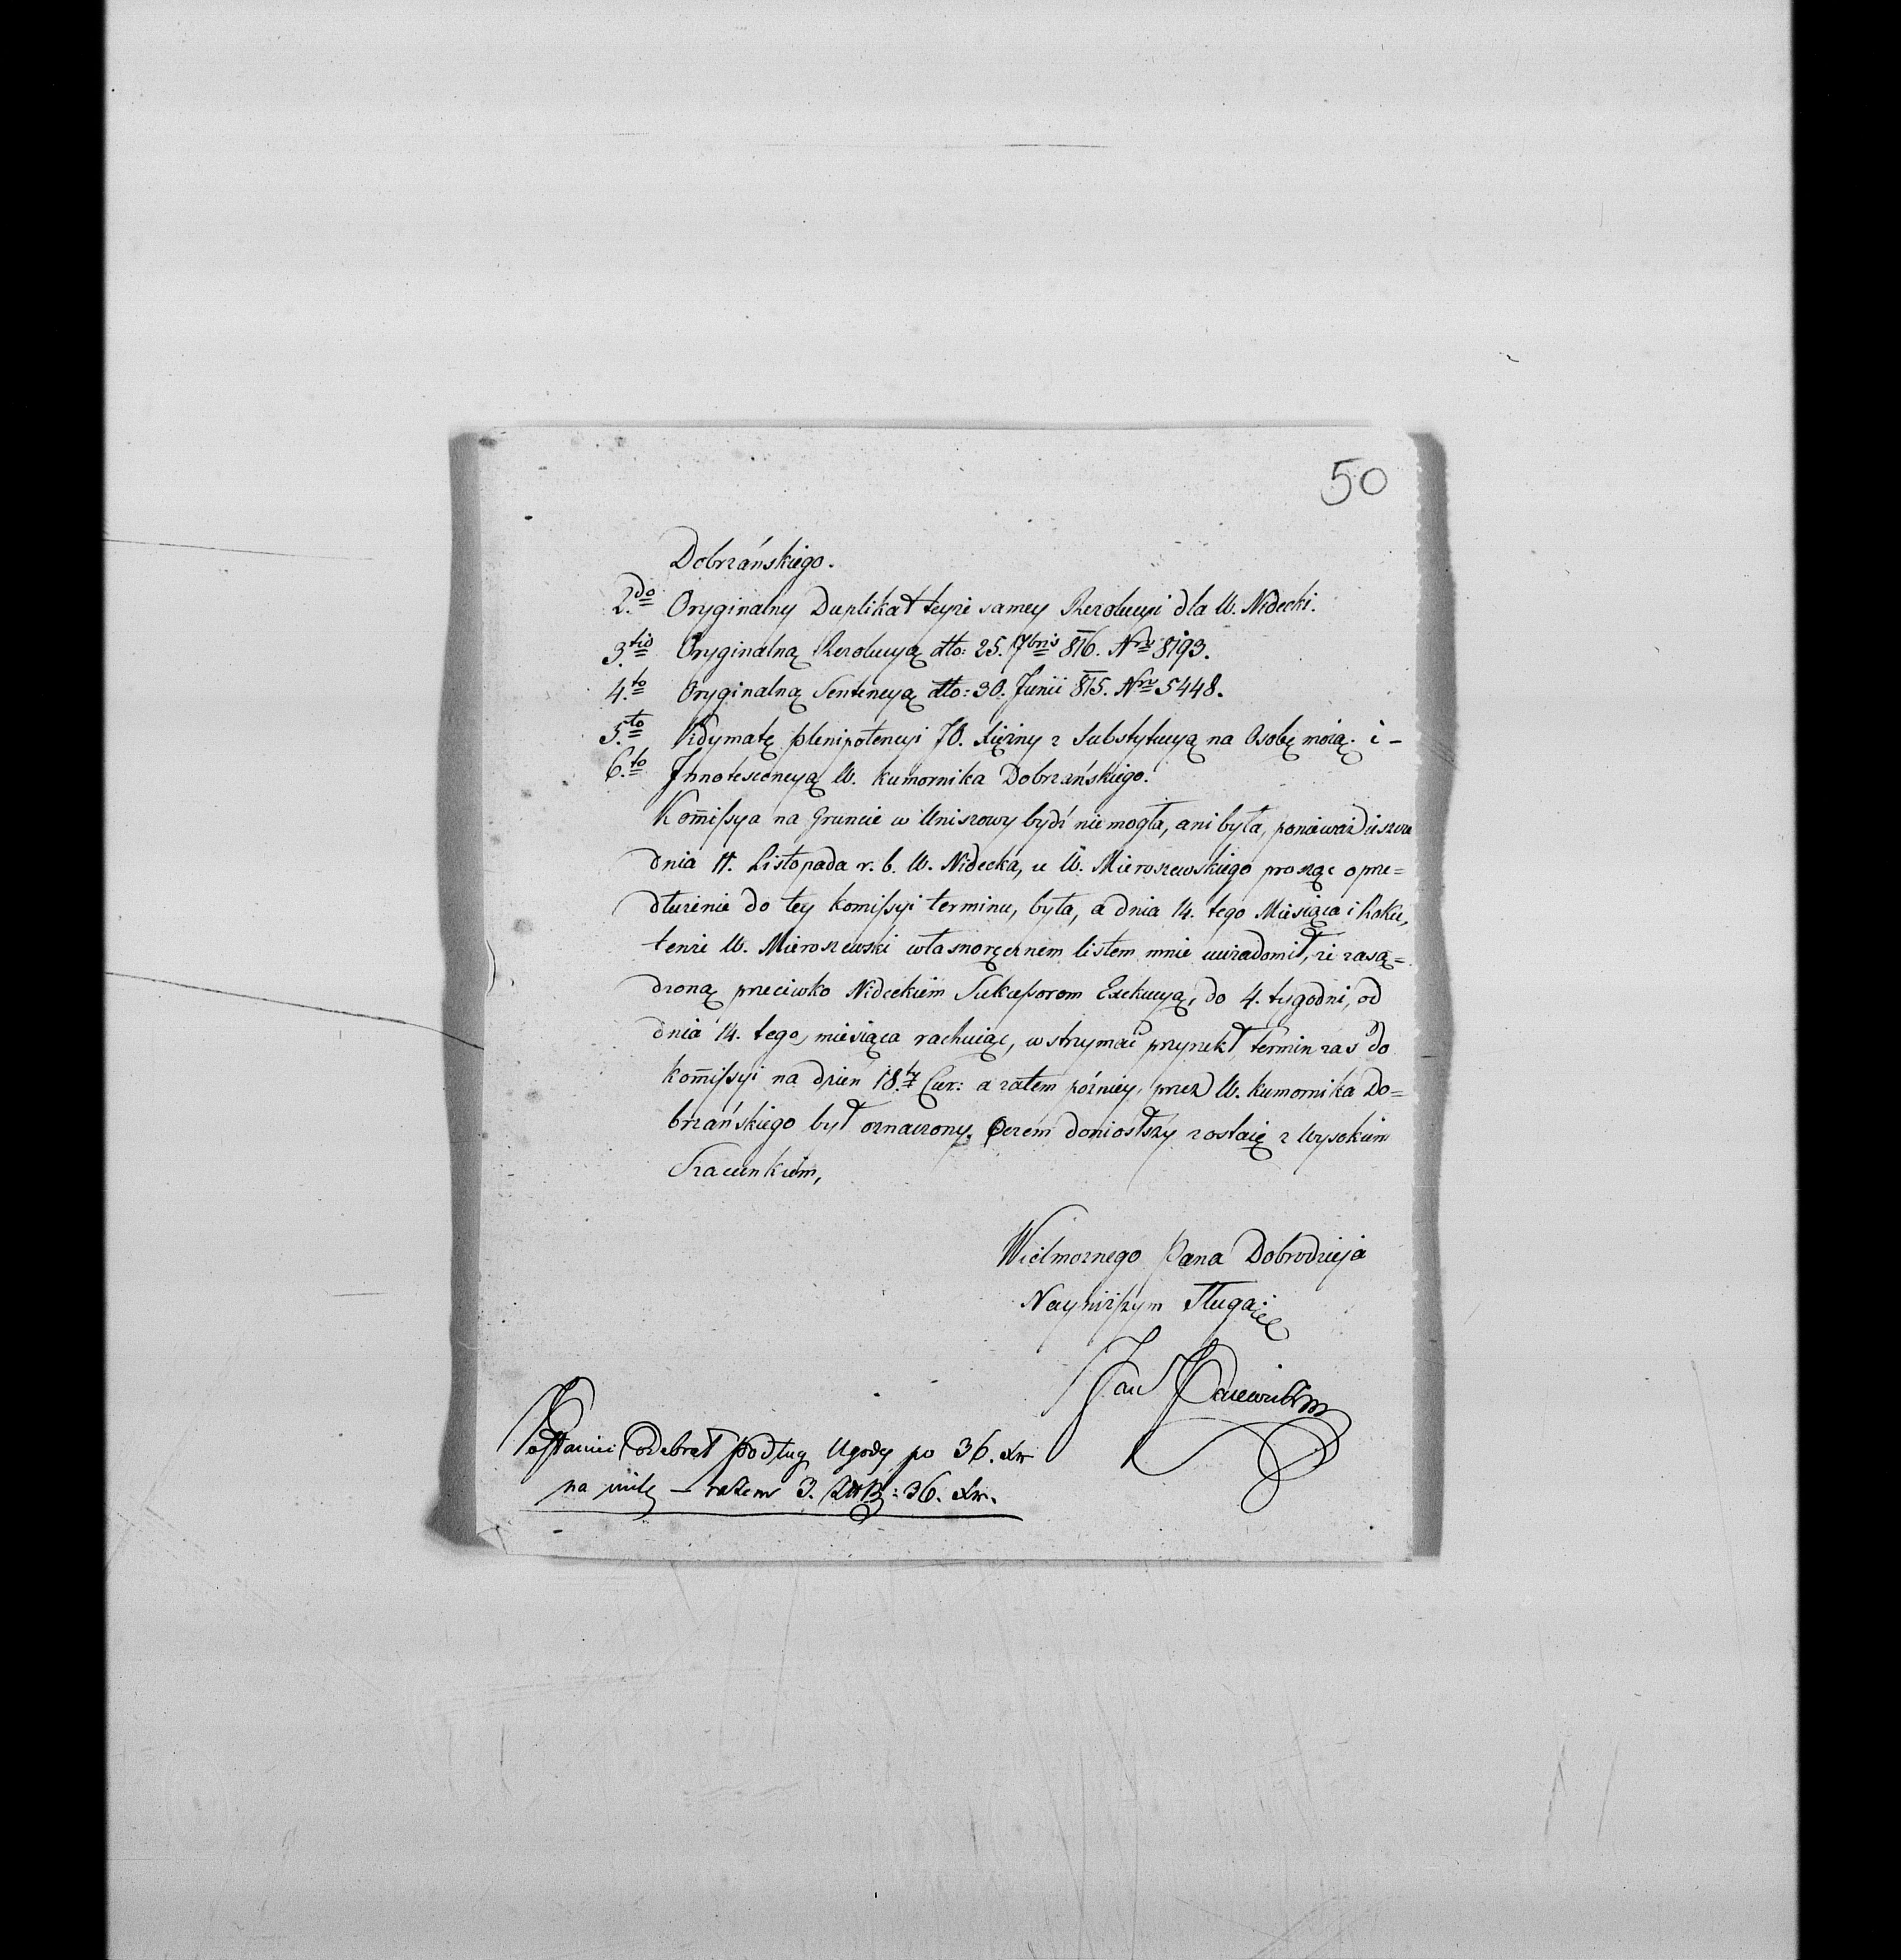 50
Dobrzańskiego.
2.do Oryginalny Duplikat teyże samey Rezolucyi dla W. Nidecki.
3.tio Oryginalną Rezolucyą dto: 25. 7bris 816. Nro 8193.
4.to Oryginalną Sentencyą dto: 30. Junii 815. Nro 5448.
5.to Vidymatę plenipotencyi JO. Xiężny z Substytucyą na Osobę moią. i –
6.to Innotescencyą W. Kumornika Dobrzańskiego.
Kom̄issya na Gruncie w Uniszowy bydź nie mogła, ani była, ponieważ ieszcze
dnia 11. Listopada r. b. W. Nidecka, u W. Mieroszewskiego prosząc o prze=
dłużenie do tey Komissyi terminu, była, a dnia 14. tego Miesiąca i Roku,
tenże W. Mieroszewski własnoręcznem listem mnie uwiadomił, że zasą=
dzoną przeciwko Nideckim Sukcessorom Exekucyą, do 4. tygodni, od
dnia 14. tego, miesiąca rachuiąc, wstrzymać przyrzekł, termin zaś do
kom̄issyi na dzień 18. Cur: a zatem późniey, przez W. Kumornika Do=
brzańskiego był oznaczony. Oczem doniosłszy zostaię z Wysokim
Szacunkiem,
Wielmożnego Pana Dobrodzieja
Nayniższym Sługą
Jan
Posłaniec odebrał podług Ugody po 36. xr
na milę – razem 3. : 36. xr.